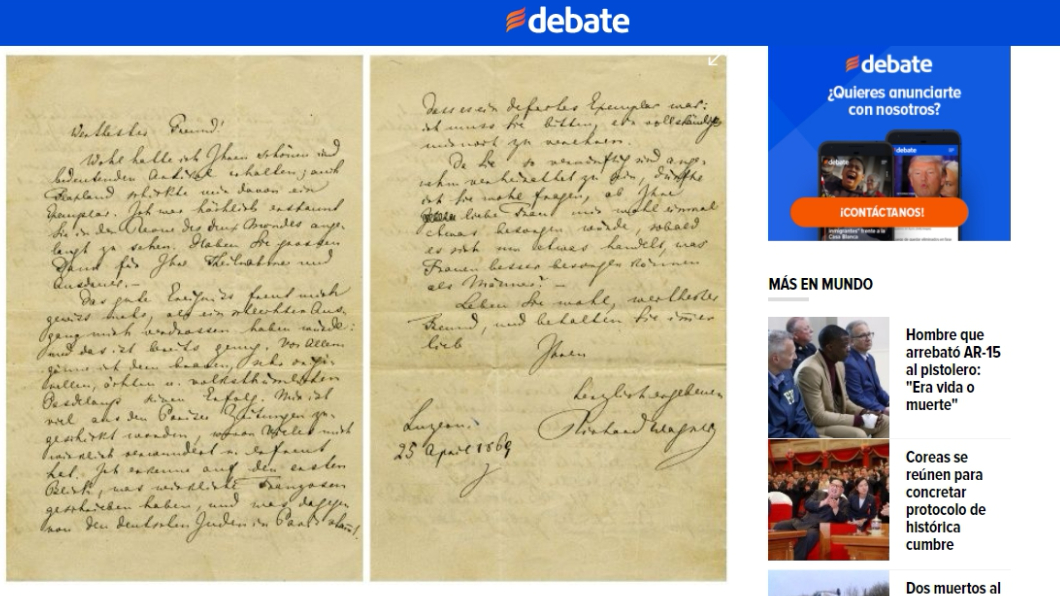 debate
Werthester Freund!
Wohl hatte ich Ihren schönen und
bedeutenden Artikel erhalten; auch
schickte mir davon ein
Exemplar. Ich war höchlich erstaunt
Sie in der Revue des deux Mondes ange-
langt zu sehen. Haben Sie grossen
Dank für Ihre Theilnahme und
Ausdauer. –
Das gute Ereigniss freut mich
gewiss mehr, als ein schlechter Aus-
gang mich verdrossen haben würde:
und das ist bereits genug. Vor Allem
gönne ich dem braven, sehr
ächten u. volksthümlichen
Pasdeloup seinen Erfolg. Mir ist
viel aus den Pariser Zeitungen zu-
geschickt worden, wovon Vieles mich
wirklich verwundert u. erfreut
hat. Ich erkenne auf den ersten
Blick, was wirkliche Franzosen
geschrieben haben, und was dagegen
von den deutschen Juden in Paris
Exemplar war:
ich muss Sie bitten, es vollständig
zu
Da Sie so vernünftig sind ange-
nehm verheirathet zu sein, dürfte
ich Sie wohl fragen, ob Ihre
liebe Frau mir wohl einmal
etwas besorgen würde, sobald
es sich um etwas handelt, was
Frauen besser besorgen können
als Männer? –
Leben Sie wohl, werthester
Freund, und behalten Sie immer
lieb
Ihren
herzlich ergebenen
Richard Wagner
Luzern.
25 April 1869
debate
¿Quieres anunciarte
con nosotros?
debate
debate
¡CONTÁCTANOS!
inmigrantes" frente a la
Casa Blanca
MÁS EN MUNDO
Hombre que
arrebató AR-15
al pistolero:
"Era vida o
muerte"
Coreas se
reúnen para
concretar
protocolo de
histórica
cumbre
Dos muertos al